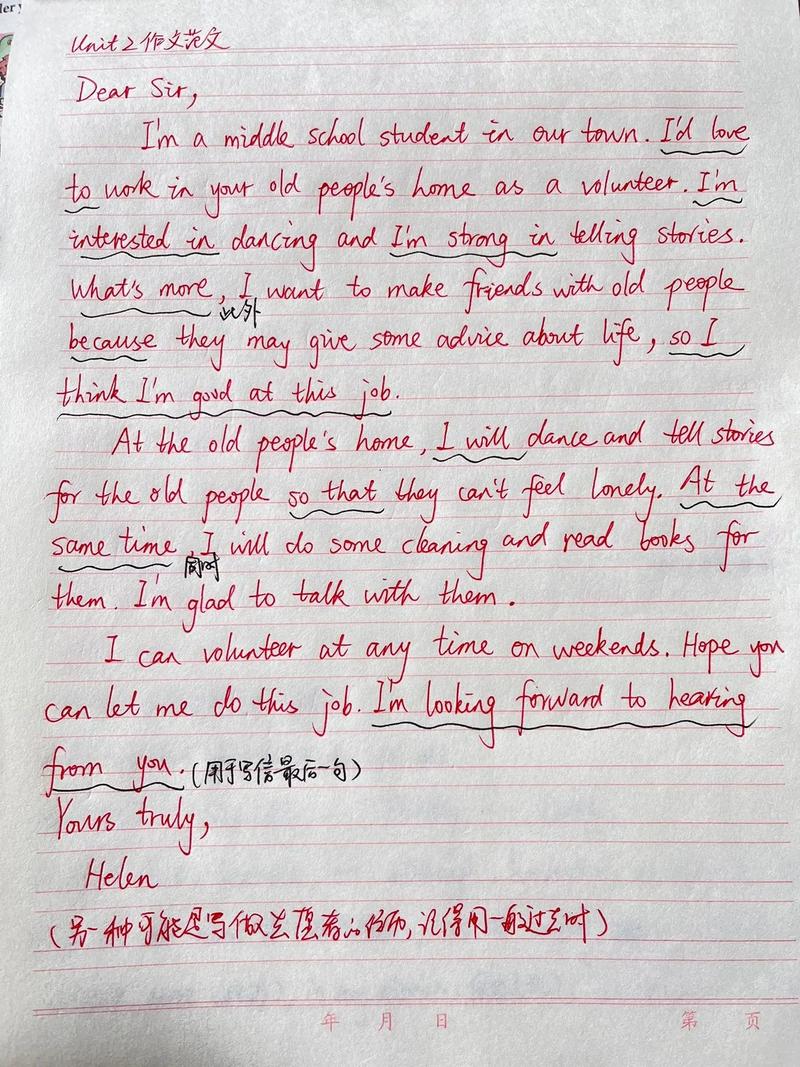 ler y
Unit 2 作文范文
Dear Sir,
I'm a middle school student in our town. I'd love
to work in your old people's home as a volunteer. I'm
interested in dancing and I'm strong in telling stories.
What's more, I want to make friends with old people
此外
because they may give some advice about life, so I
think I'm good at this job.
At the old people's home, I will dance and tell stories
for the old people so that they can't feel lonely. At the
same time, I will do some cleaning and read books for
同时
them. I'm glad to talk with them.
I can volunteer at any time on weekends. Hope you
can let me do this job. I'm looking forward to hearing
from you. (用于写信最后一句)
Yours truly,
Helen
(另一种可能是写做志愿者的经历, 记得用一般过去时)
年 月 日 第 页